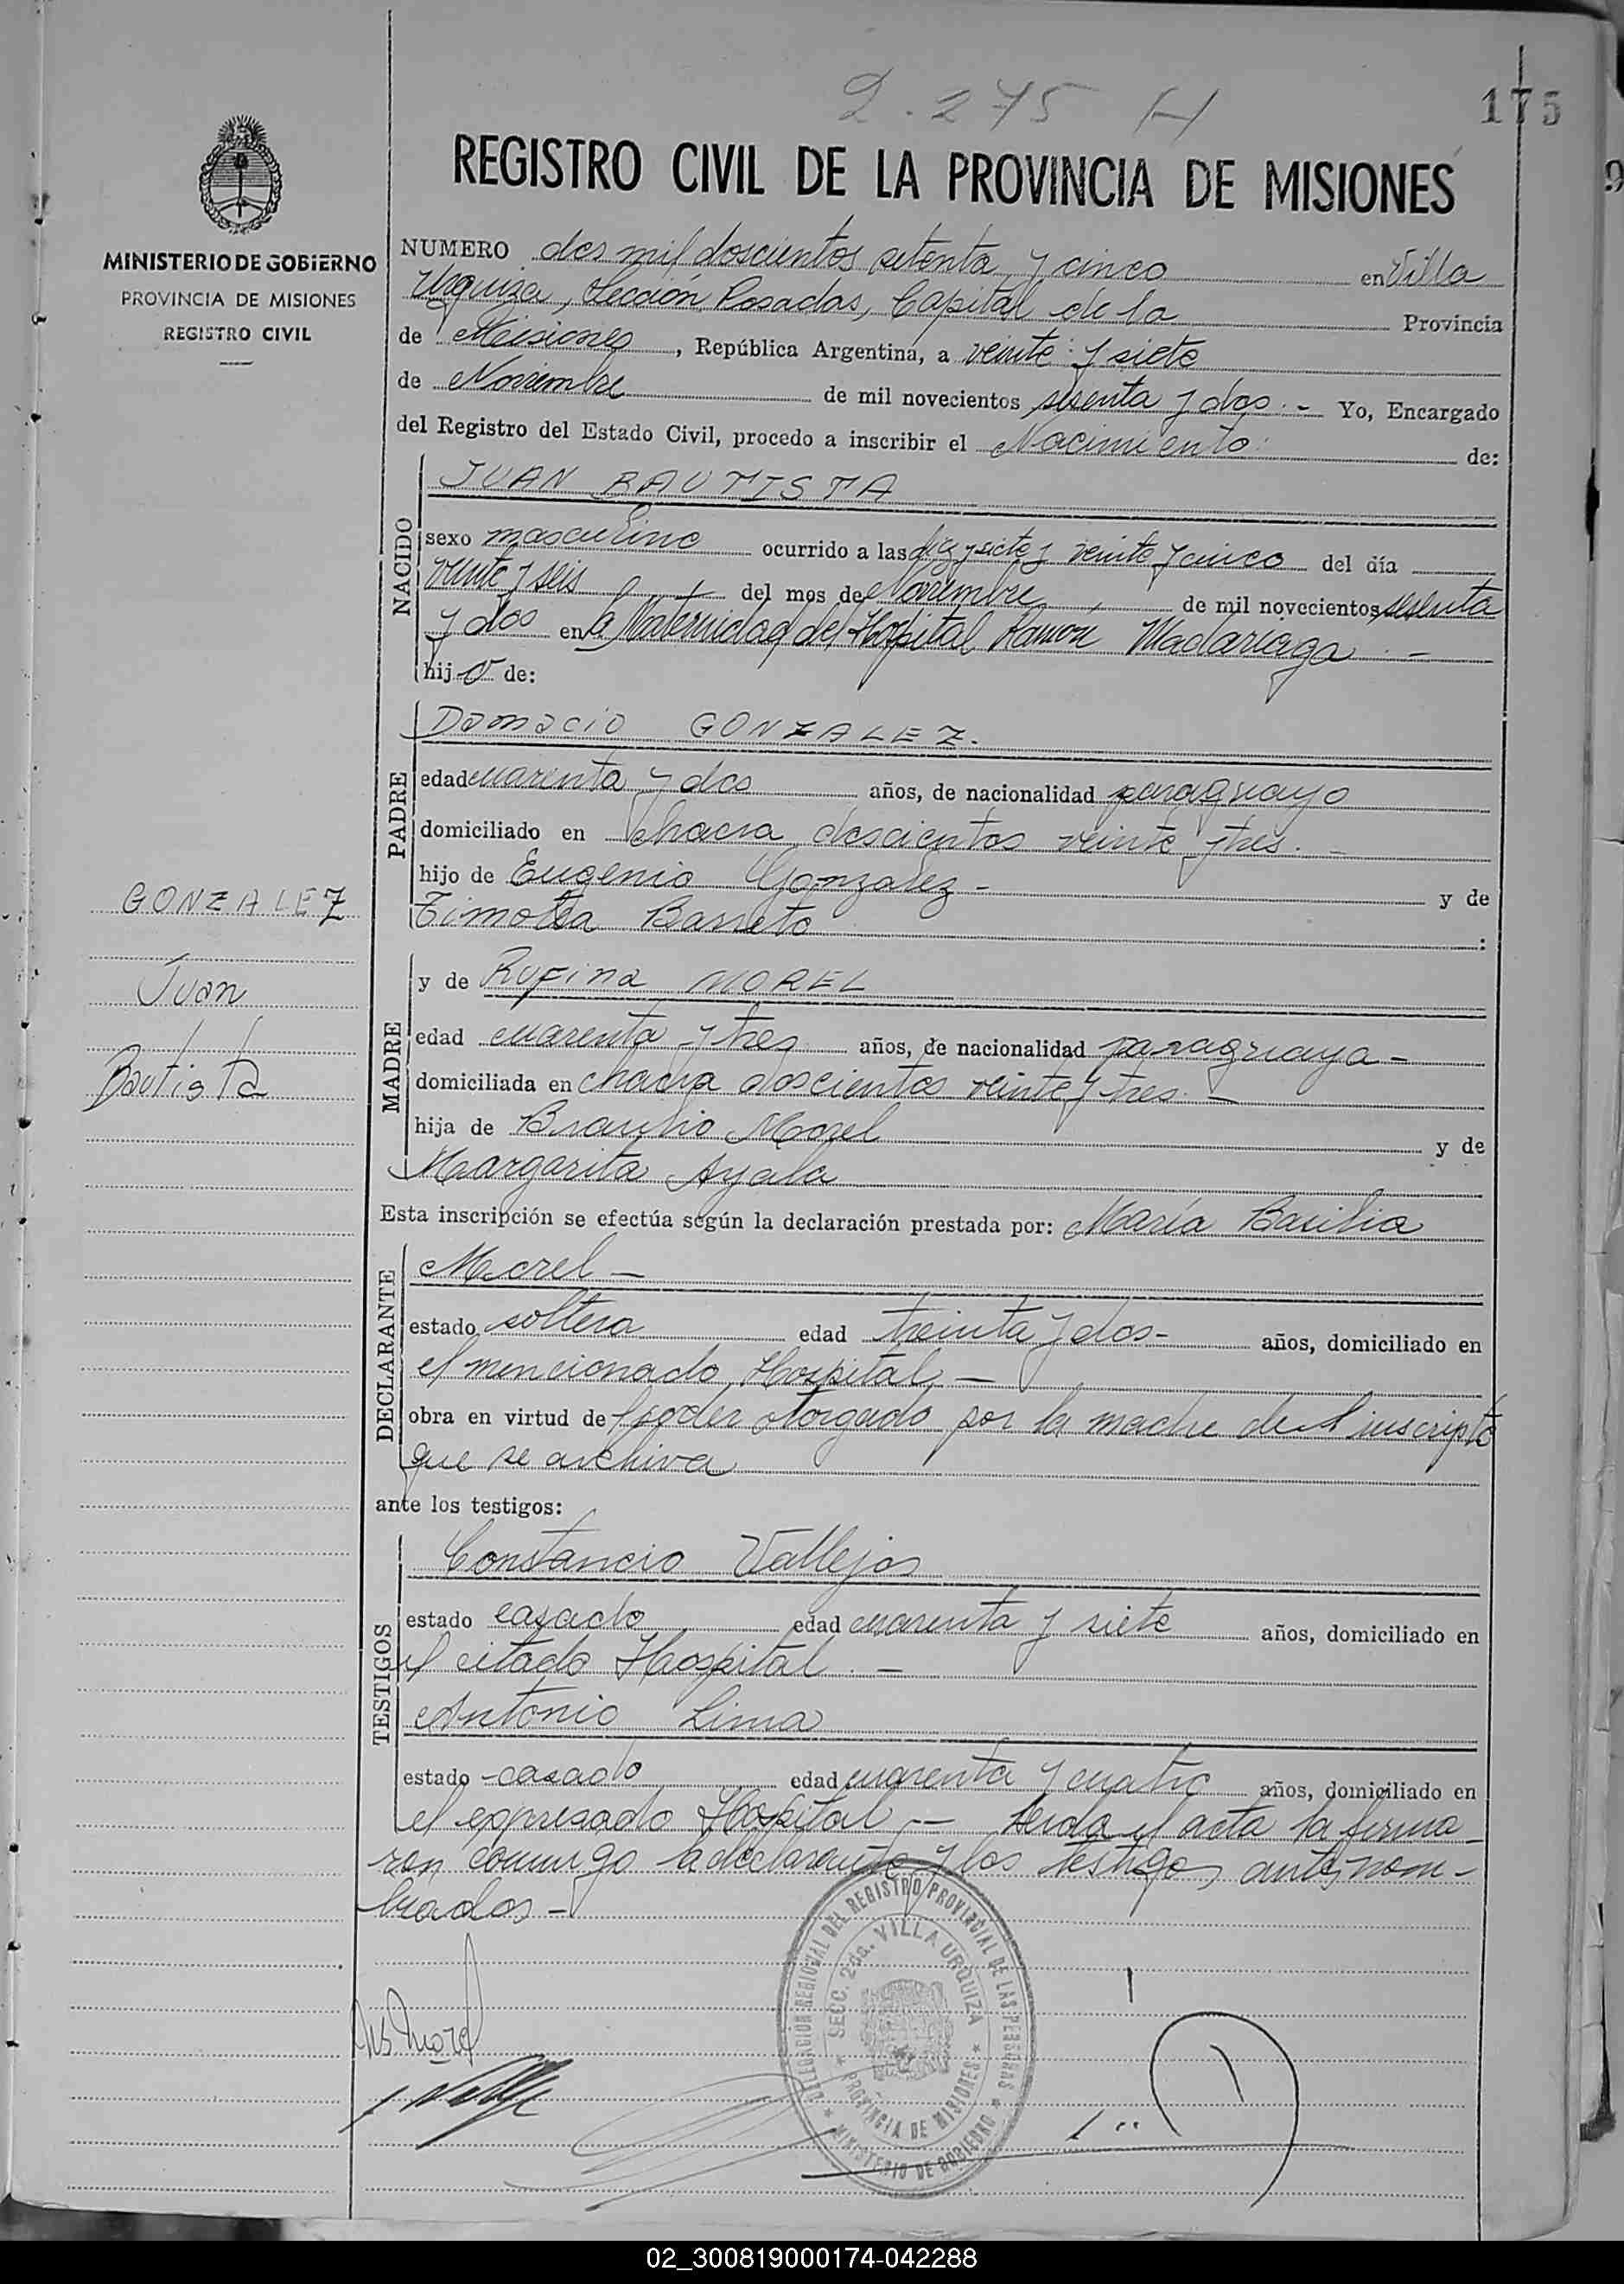 2.275 H
175
REGISTRO CIVIL DE LA PROVINCIA DE MISIONES
MINISTERIO DE GOBIERNO
PROVINCIA DE MISIONES
REGISTRO CIVIL
NUMERO dos mil doscientos setenta y cinco en Villa
Urquiza, Sección Posadas, Capital de la Provincia
de Misiones, República Argentina, a veinte y siete
de Noviembre de mil novecientos sesenta y dos.- Yo, Encargado
del Registro del Estado Civil, procedo a inscribir el Nacimiento de:
NACIDO
JUAN BAUTISTA
sexo masculino ocurrido a las diez y siete y veinte y cinco del día
veinte y seis del mes de Noviembre de mil novecientos sesenta
y dos en la Maternidad del Hospital Ramón Madariaga.-
hijo de:
PADRE
Damacio GONZALEZ.
edad cuarenta y dos años, de nacionalidad paraguayo
domiciliado en Chacra doscientos veinte y tres.-
hijo de Eugenio Gonzalez- y de
Timotea Barreto :
GONZALEZ
Juan
Bautista
MADRE
y de Rufina MOREL
edad cuarenta y tres años, de nacionalidad paraguaya-
domiciliada en chacra doscientos veinte y tres.-
hija de Braulio Morel y de
Margarita Ayala
Esta inscripción se efectúa según la declaración prestada por: María Basilia
DECLARANTE
Morel-
estado soltera edad treinta y dos- años, domiciliado en
el mencionado Hospital-
obra en virtud de poder otorgado por la madre del inscripto
que se archiva
ante los testigos:
TESTIGOS
Constancio Vallejos
estado casado edad cuarenta y siete años, domiciliado en
el citado Hospital.-
Antonio Lima
estado casado edad cuarenta y cuatro años, domiciliado en
el expresado Hospital-- Leida el acta la firma-
ron conmigo la declarante y los testigos antes nom-
brados-
DELEGACION REGIONAL DEL REGISTRO PROVINCIAL DE LAS PERSONAS
SECC. 2da. VILLA URQUIZA
PROVINCIA DE MISIONES
MINISTERIO DE GOBIERNO
02_300819000174-042288